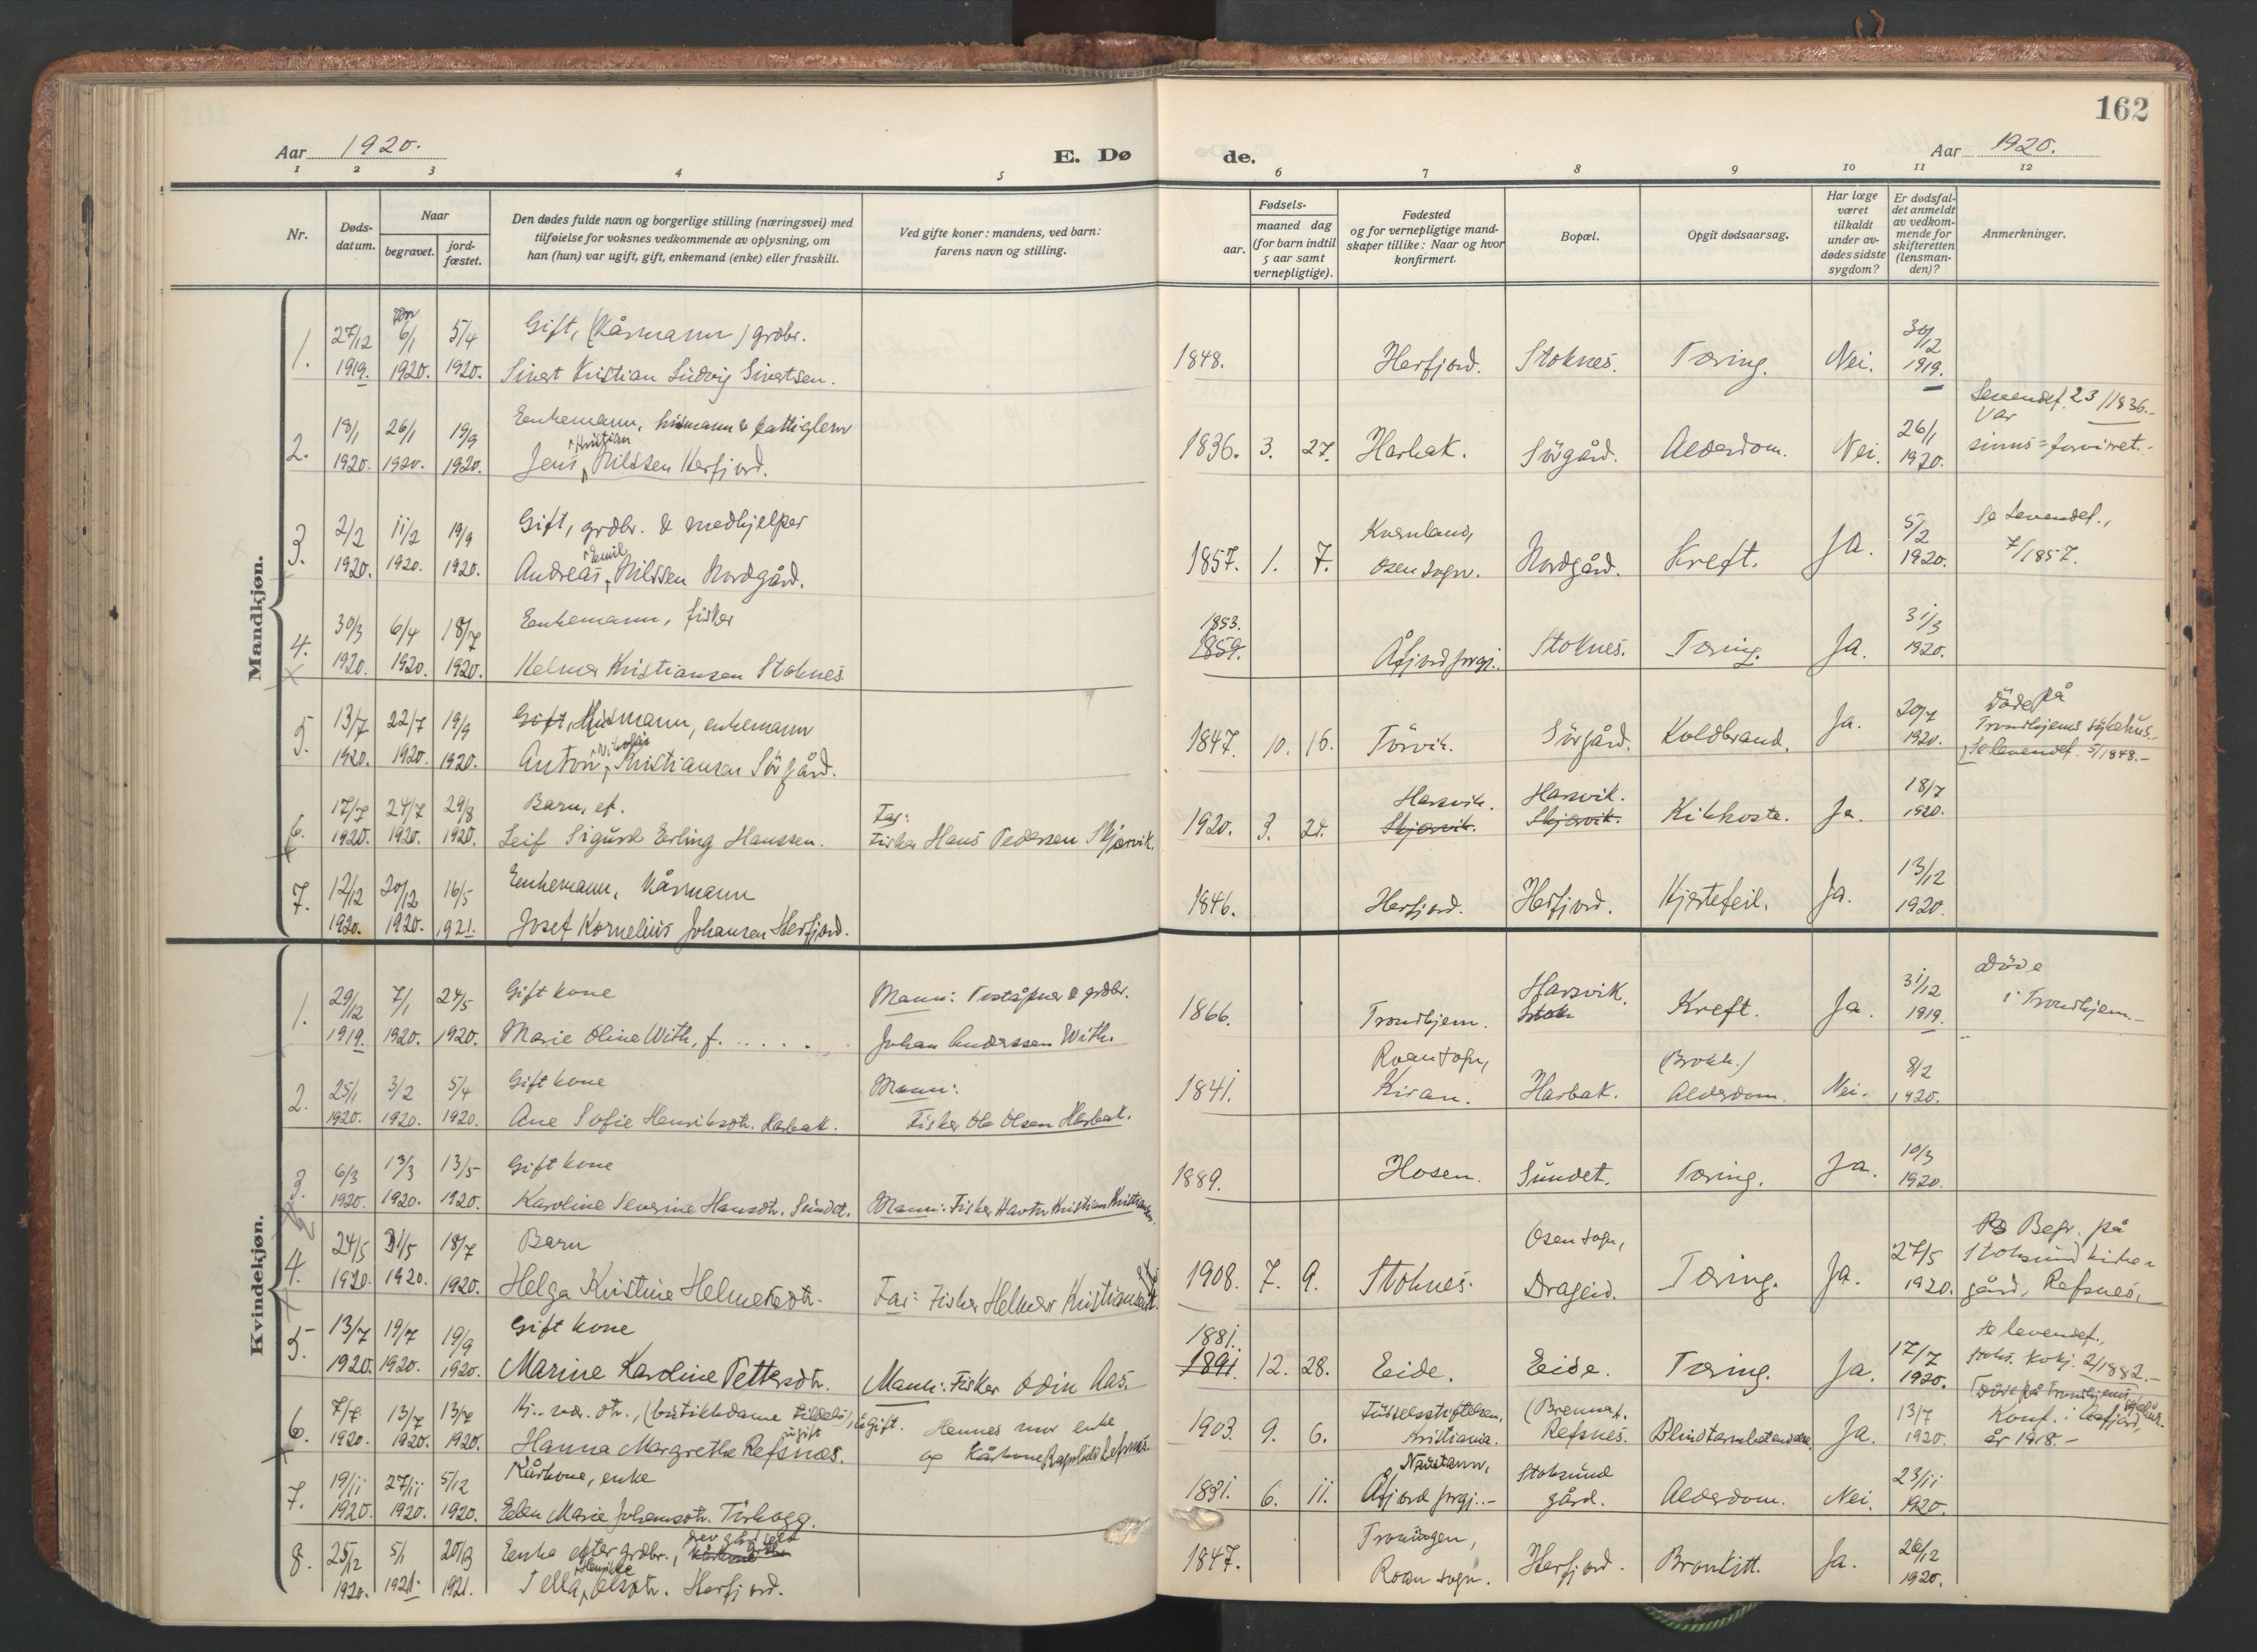 162
Aar 1920.
E. Dø
de.
Aar 1920.
1 2 3 4 5 6 7 8 9 10 11 12
Nr.
Døds-
datum.
Naar
begravet.
jord-
fæstet.
Den dødes fulde navn og borgerlige stilling (næringsvei) med
tilføielse for voksnes vedkommende av oplysning, om
han (hun) var ugift, gift, enkemand (enke) eller fraskilt.
Ved gifte koner: mandens, ved barn:
farens navn og stilling.
Fødsels-
aar.
maaned dag
(for barn indtil
5 aar samt
vernepligtige).
Fødested
og for vernepligtige mand-
skaper tillike: Naar og hvor
konfirmert.
Bopæl.
Opgit dødsaarsag.
Har læge
været
tilkaldt
under av-
dødes sidste
sygdom?
Er dødsfal-
det anmeldt
av vedkom-
mende for
skifteretten
(lensman-
den)?
Anmerkninger.
Mandkjøn.
1. 27/12 6/1 5/4 Gift, (Kårmann) grdbr. 30/12
1919. 1920. 1920. Sivert Kristian Ludvig Sivertsen. 1848. Herfjord. Stoknes. Tæring. Nei. 1919.
2. 19/1 26/1 19/9 Enkemann, husmann & fattiglem 26/1 Levendef. 23/1836.- Var
1920. 1920. 1920. Jens Kristian Nilssen Herfjord. 1836. 3. 27. Harbak. Sörgård. Alderdom. Nei. 1920. sinns=forvirret.-
3. 2/2 11/2 19/9 Gift, grdbr. & medhjelper Kvernland, 5/2 Se Levendef.,
1920. 1920. 1920. Andreas Emil Nilssen Nordgård. 1857. 1. 7. Osen sogn. Nordgård. Kreft. Ja. 1920. 7/1857.
4. 30/3 6/4 18/7 Enkemann, fisker 1853. 31/3
1920. 1920. 1920. Helmer Kristiansen Stoknes 1859. Åfjord prgj. Stoknes. Tæring. Ja. 1920.
5. 13/7 22/7 19/9 Gift, Husmann, enkemann 20/7 Döde på
1920. 1920. 1920. Anton Kristiansen Sörgård. 1847. 10. 16. Törvik. Sörgård. Koldbrand. Ja. 1920. Trondhjems sykehus.-
Se levendef. 5/1848.-
6. 17/7 24/7 29/8 Barn, ef. Far: Harsvik. Harsvik. 18/7
1920. 1920. 1920. Leif Sigurd Erling Hanssen. Fisker Hans Pederssen Skjærvik. 1920. 3. 24. Skjærvik. Skjærvik. Kikhoste. Ja. 1920.
7. 12/12 20/12 16/5 Enkemann, Kårmann 13/12
1920. 1920. 1921. Josef Kornelius Johansen Herfjord. 1846. Herfjord. Herfjord. Hjertefeil. Ja. 1920.
Kvindekjøn.
1. 29/12 7/1 24/5 Gift kone Mann: & grdbr. Harsvik. 31/12 Döde
1919. 1920. 1920. Marie Oline With, f. . . . . . Johan Anderssen With. 1866. Trondhjem. Kreft. Ja. 1919. i Trondhjem.-
2. 25/1 3/2 5/4 Gift kone Mann: Roan sogn, (Brokk.) 8/2
1920. 1920. 1920. Ane Sofie Henriksdtr. Harbak. Fisker Ole Olsen Harbak. 1841. Kiran. Harbak. Alderdom. Nei. 1920.
3. 6/3 13/3 13/5 Gift kone 10/3
1920. 1920. 1920. Karoline Severine Hansdtr. Sundet. Mann: Fisker Kristian Kristiansen. 1889. Hosen. Sundet. Tæring. Ja. 1920.
4. 24/5 31/5 18/7 Barn Osen sogn, 27/5 Begr. på
1920. 1920. 1920. Helga Kristine Helmersdtr. Far: Fisker Helmer Kristiansen 1908. 7. 9. Stoknes. Drageid. Tæring. Ja. 1920. Stoksund kirke-
gård, Refsnes.
5. 13/7 19/7 19/9 Gift kone 1881. 17/7 Se levendef.,
1920. 1920. 1920. Marine Karoline Pettersdtr. Mann: Fisker Odin Aas. 1891. 12. 28. Eide. Eide. Tæring. Ja. 1920. 2/1882.-
Döde på Trondhjems sykehus.
6. 7/7 13/7 13/7 (butikkdame ugift. Hennes mor enke Födselsstiftelsen, (Brenna). 13/7 Konf. i Aafjord,
1920. 1920. 1920. Hanna Margrethe Refsnes. og Kårkone Refsnes. 1903. 9. 6. Kristiania. Refsnes. Blindtarmbetendelse. Ja. 1920. år 1918.-
7. 19/11 27/11 5/12 Kårkone, enke Naustann, Stoksund 23/11
1920. 1920. 1920. Ellen Marie Johansdtr. Tørhogg. 1831. 6. 11. Åfjord prgj.- gård. Alderdom. Nei. 1920.
8. 25/12 5/1 20/3 Enke efter grdbr., Kårkone 26/12
1920. 1921. 1921. Pella Henrikke Olsdtr. Herfjord. 1847. Roan sogn. Herfjord. Bronkitt. Ja. 1920.